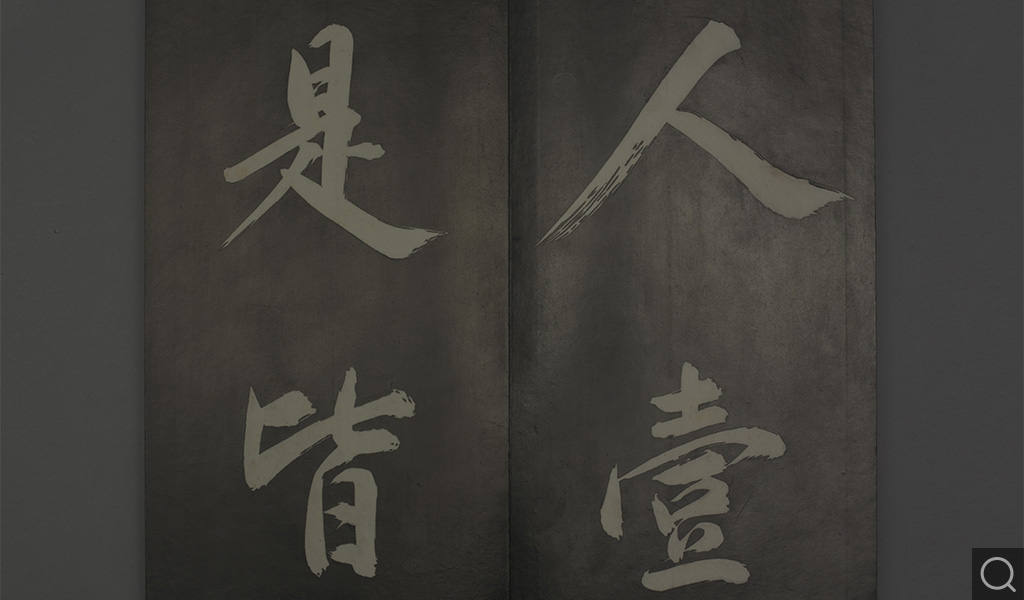 人壹
是皆